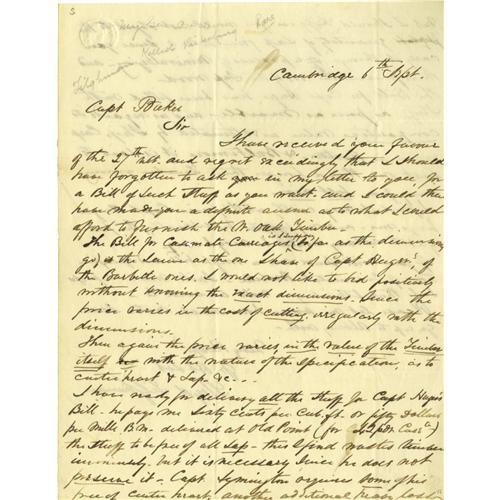 Cambridge 6th Sept.
Capt Baker
Sir
I have received your favour
of the 27th ult. and regret exceedingly that I should
have forgotten to ask you in my letter to you, for
a Bill of Such Stuff as you want and I could then
have made you a definite answer as to what I could
afford to furnish the W. Oak Timber.
The Bill for Casmate Carriages is I suppose (so far as the dimensions
go) is the Same as the one I have of Capt Huger's of
the Barbide ones. I would not like to bid positively
without knowing the exact dimensions. Since the
price varies in the cost of cutting, irregularly with the
dimensions.
Then again the price varies in the value of the Timber
itself with the nature of the Specification, as to
centre heart & Sap &c
I have ready for delivery all the Stuff for Capt Huger's
Bill. he pays me Sixty Cents per Cub. ft. or fifty Dollars
per Mille B.M. delivered at Old Point (for
the Stuff to be free of all Sap. this I find wastes timber
immensely. but it is necessary Since he does not
preserve it. Capt Symington requires some of his
free of centre heart, another additional